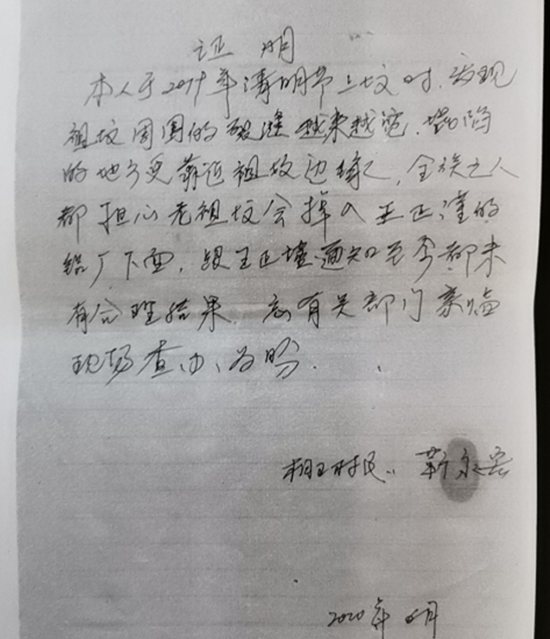 证明
本人于2019年清明节上坟时,发现
祖坟周围的裂缝越来越宽,塌陷
的地方更靠近祖坟边缘,全族之人
都担心老祖坟会掉入王正漟的
下面,跟王正 通知至今都未
有合理结果,忘有关部门亲临
现场查办为盼.
村民: 靳
2020年 月